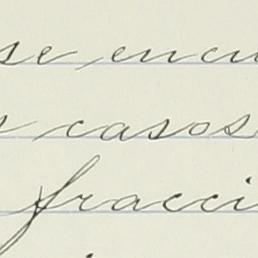 se encu
s casos
fracci